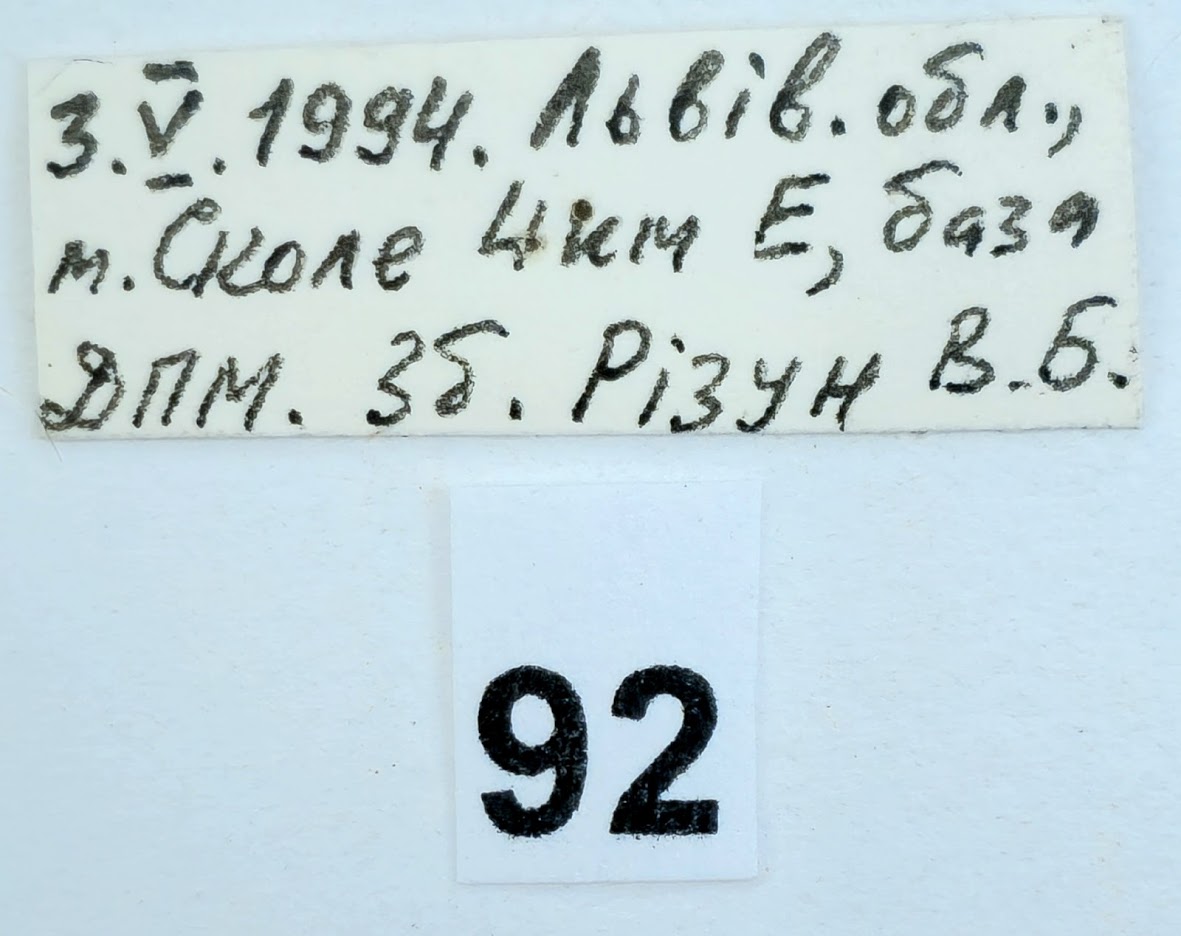 3.V.1994. Львів. обл.,
м. Сколе 4км Е, база
ДПМ. Зб. Різун В.Б.
92